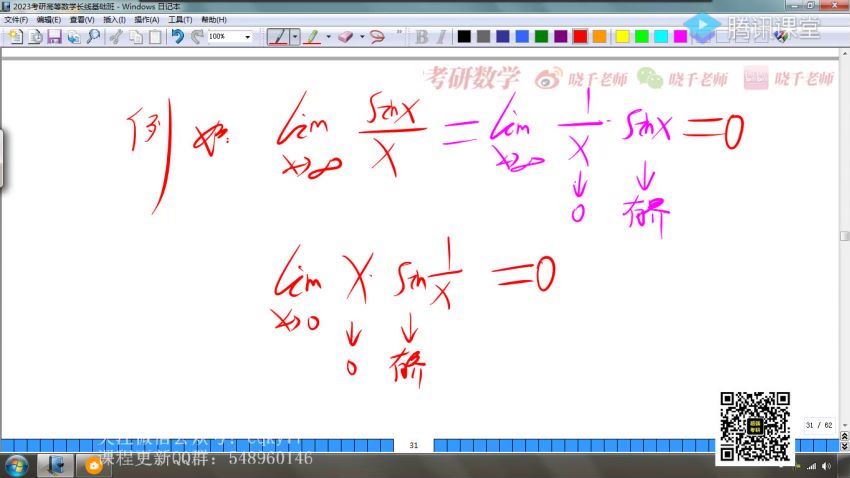 2023考研高等数学长线基础班 - Windows 日记本
文件(F) 编辑(E) 查看(V) 插入(I) 操作(A) 工具(T) 帮助(H)
100% B I
腾讯课堂
考研数学 晓千老师 晓千老师 晓千老师
例 如: lim x→∞ sinx/x = lim x→∞ 1/x · sinx = 0
0 有界
lim x→0 x · sin 1/x = 0
0 有界
31 / 62
31
课程更新QQ群: 548960146